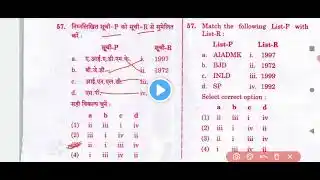 57. निम्नलिखित सूची-P को सूची-R से सुमेलित
करें :
सूची-P सूची-R
a. ए.आई.ए.डी.एम.के. i. 1997
b. बी.जे.डी. ii. 1972
c. आई.एन.एल.डी. iii.
d. एस.पी. iv.
सही विकल्प चुनें :
a b c d
(1) ii iii i iv
(2) ii i iii iv
ii i iii iv
(4) i iii ii iv
57. Match the following List-P with
List-R :
List-P List-R
a. AIADMK i. 1997
b. BJD ii. 1972
c. INLD iii. 1999
d. SP iv. 1992
Select correct option :
a b c d
(1) ii iii i iv
(4) i iii